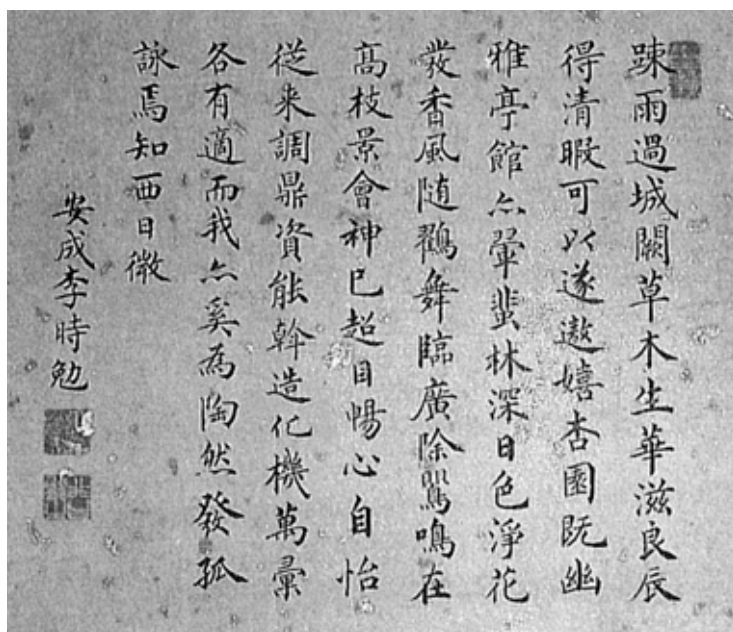 踈雨過城闕草木生華滋良辰
得清暇可以遂遨嬉杏園既幽
雅亭館亦翬蜚林深日色淨花
發香風随鶴舞臨廣除鸎鳴在
髙枝景會神已超目暢心自怡
従来調鼎資能斡造化機萬彙
各有適而我亦奚為陶然發孤
詠焉知西日微
安成李時勉